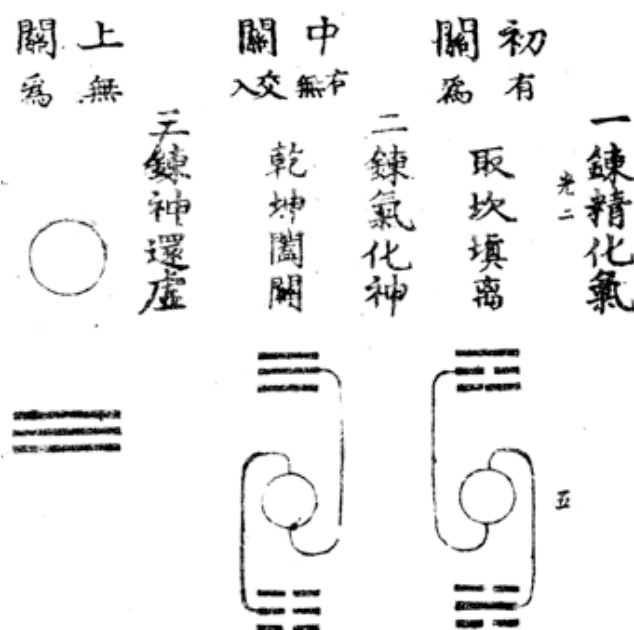 一鍊精化氣
光二
初關
有為
取坎填离
五
二鍊氣化神
中關
有無交入
乾坤闔闢
三鍊神還虛
上關
無爲